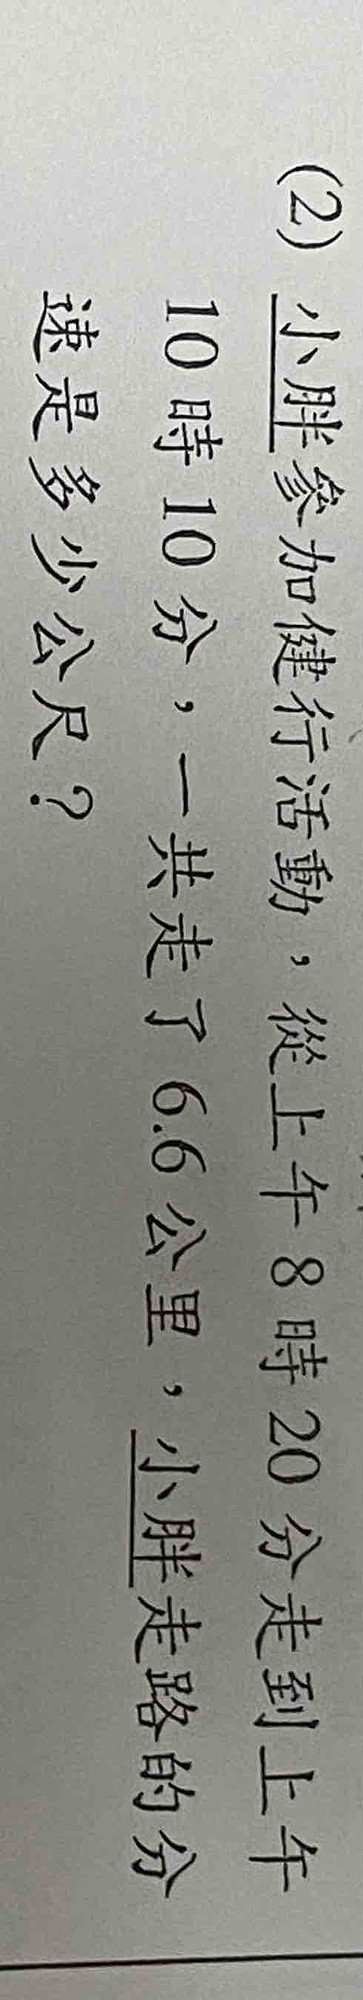 (2) 小胖參加健行活動，從上午8時20分走到上午
10時10分，一共走了6.6公里，小胖走路的分
速是多少公尺？